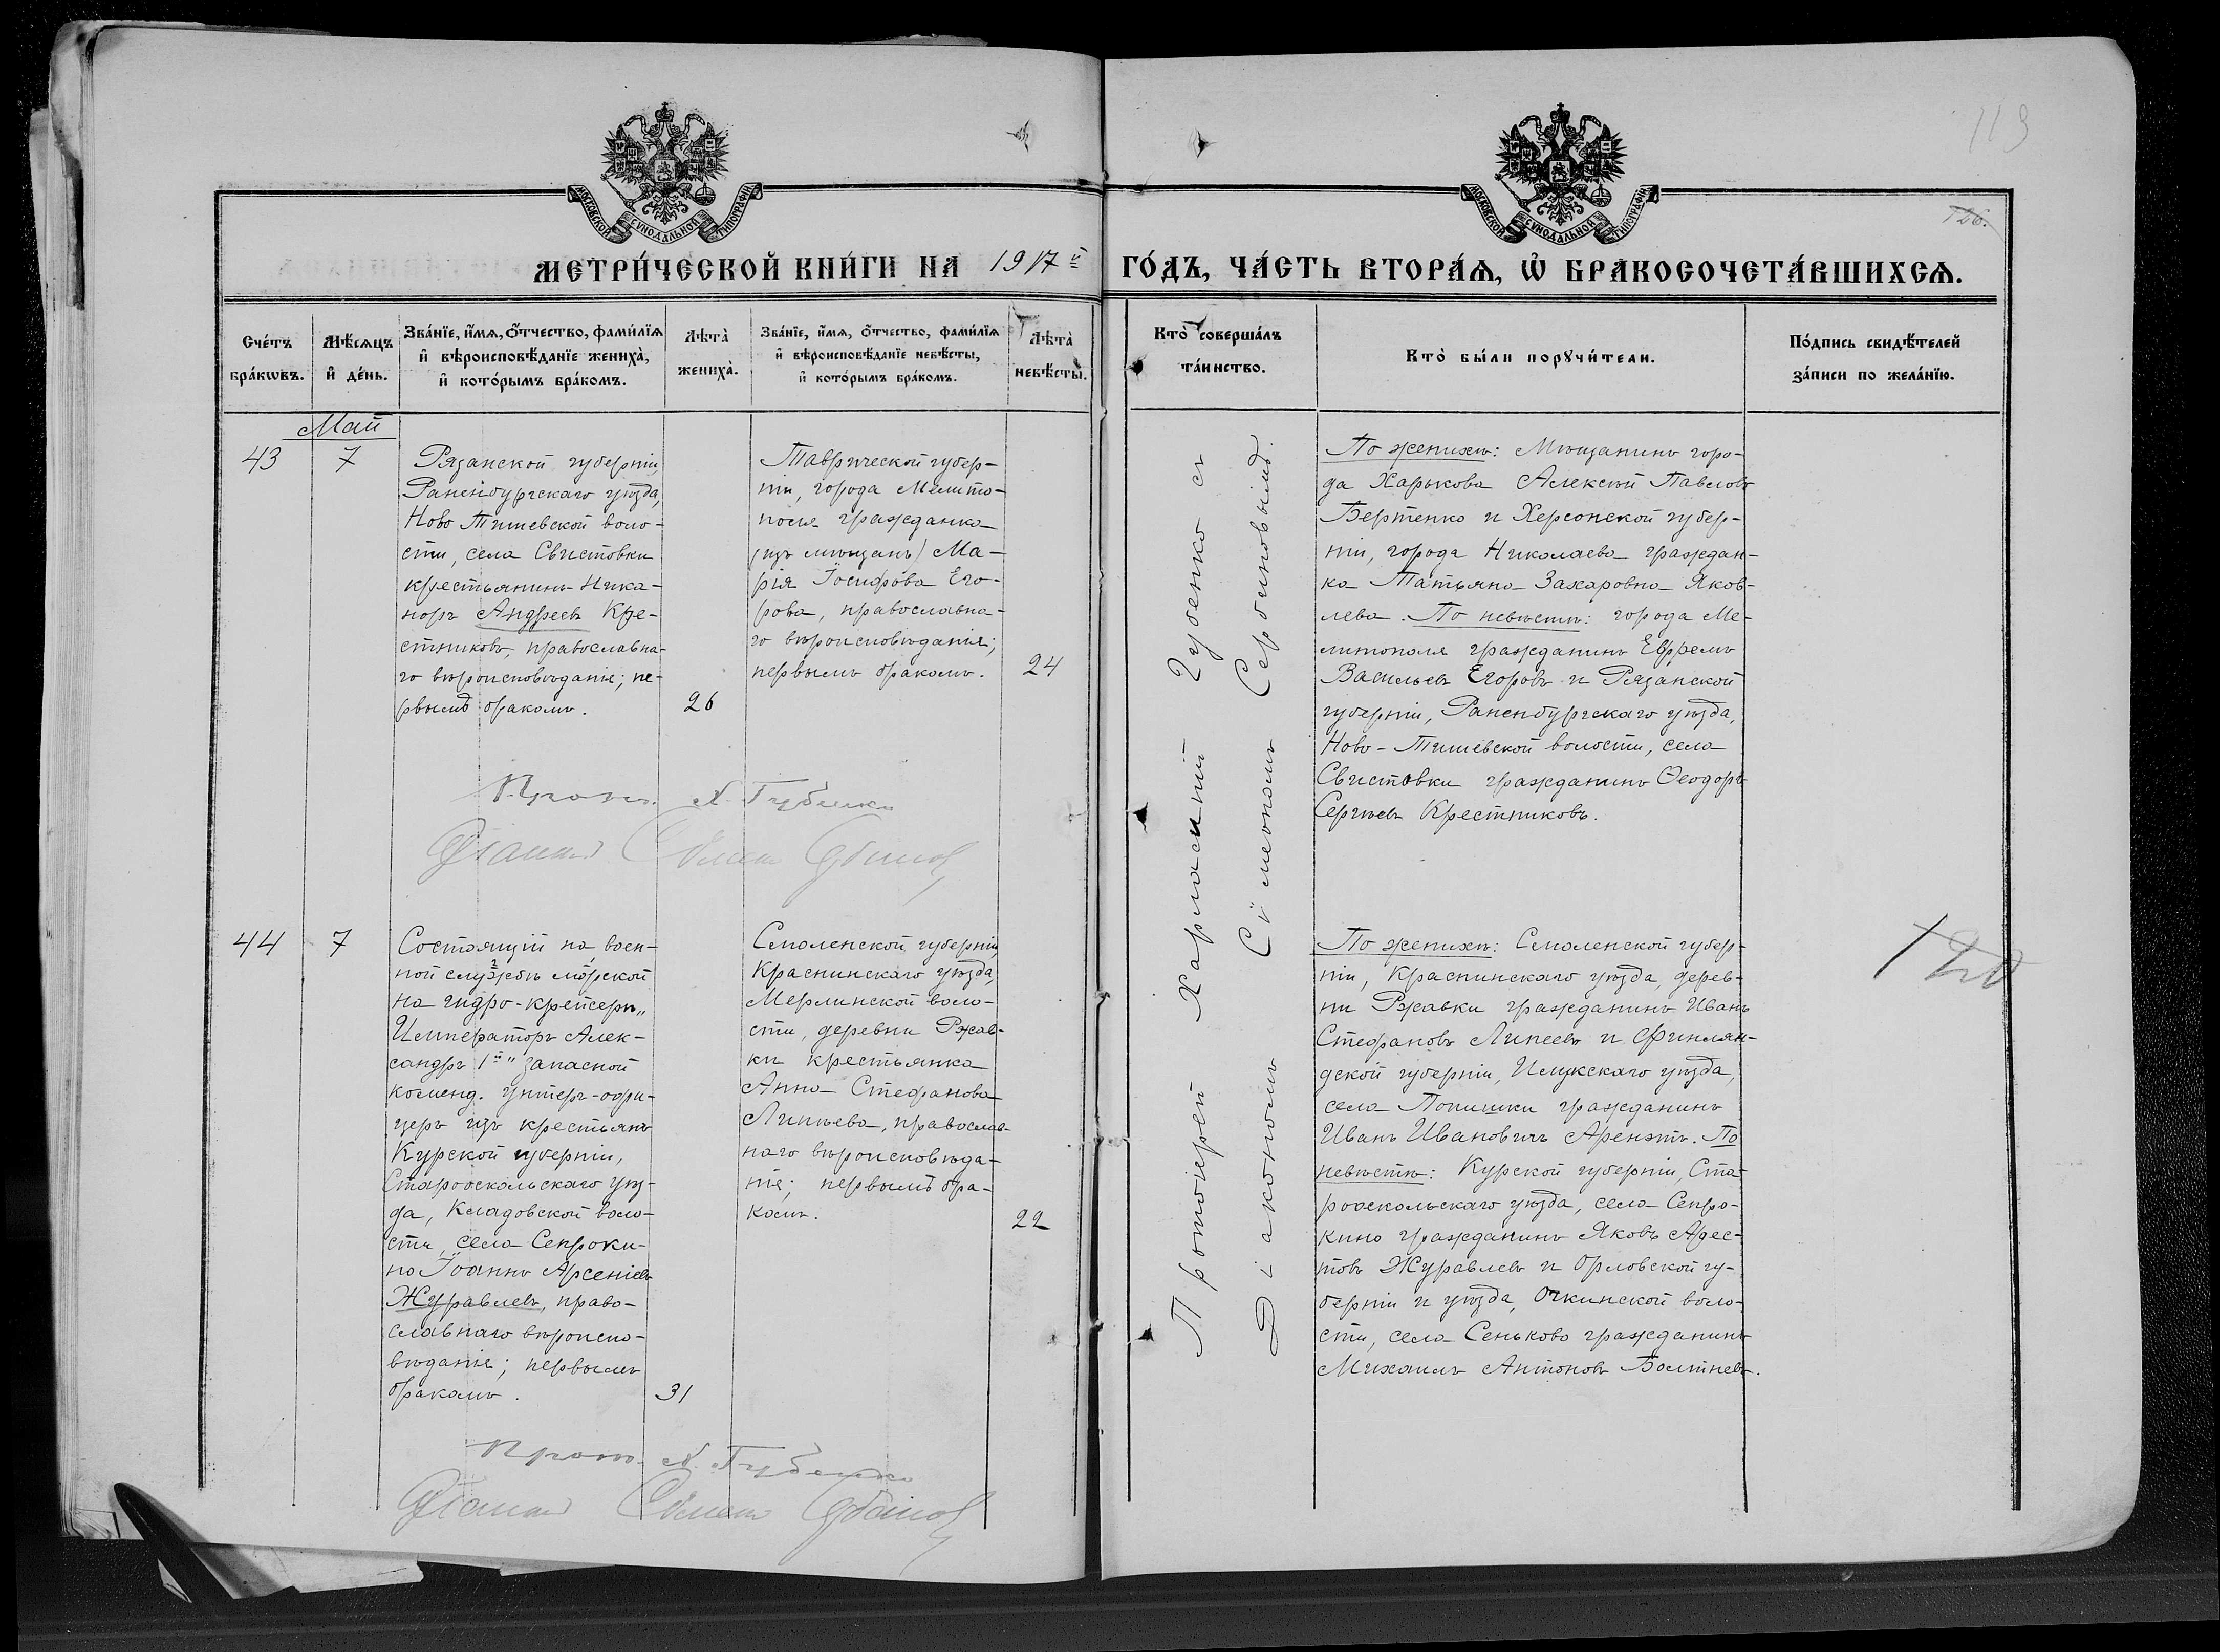 119
126.
МОСКОВСКОЙ СѴНОДАЛЬНОЙ ТИПОГРАФІИ
МОСКОВСКОЙ СѴНОДАЛЬНОЙ ТИПОГРАФІИ
МЕТРИ́ЧЕСКОЙ КНИ́ГИ НА 1917й ГО́ДЪ, ЧА́СТЬ ВТОРА́Ѧ, Ѡ҆ БРАКОСОЧЕТА́ВШИХСѦ.
Сче́тъ бра́кѡвъ.
Мѣ́сѧцъ и҆ де́нь.
Зва́нїе, и҆́мѧ, ѻ҆́тчество, фами́лїѧ и҆ вѣроисповѣ́данїе жениха̀, и҆ кото́рымъ бра́комъ.
Лѣ́та̀ жениха̀.
Зва́нїе, и҆́мѧ, ѻ҆́тчество, фами́лїѧ и҆ вѣроисповѣ́данїе невѣ́сты, и҆ кото́рымъ бра́комъ.
Лѣ́та̀ невѣ́сты.
Кто̀ соверша́лъ та́инство.
Кто̀ бы́ли порꙋчи́тели.
По́дпись свидѣ́телей за́писи по жела́нїю.
Май
43
7
Рязанской губерніи,
Раненбургскаго уѣзда,
Ново Тишевской воло-
сти, села Свистовки
крестьянинъ Ника-
норъ Андреевъ Кре-
стниковъ, православна-
го вѣроисповѣданія; пе-
рвымъ бракомъ.
26
Таврической губер-
ніи, города Мелито-
поля гражданка
(изъ мѣщанъ) Ма-
рія Іосифова Его-
рова, православна-
го вѣроисповѣданія;
первымъ бракомъ.
24
Прот. Х. Губенко
Діаконъ Сѵмеонъ Сербиновъ
Протоіерей Харлампій Губенко съ
Діакономъ Сѵмеономъ Сербиновымъ.
По женихѣ: Мѣщанинъ горо-
да Харькова Алексѣй Павловъ
Бертенко и Херсонской губер-
ніи, города Николаева граждан-
ка Татьяна Захаровна Яков-
лева. По невѣстѣ: города Ме-
литополя гражданинъ Ефремъ
Васильевъ Егоровъ и Рязанской
губерніи, Раненбургскаго уѣзда,
Ново-Тишевской волости, села
Свистовки гражданинъ Ѳеодоръ
Сергѣевъ Крестниковъ.
44
7
Состоящій на воен-
ной службѣ морской
на гидро-крейсерѣ „
Императоръ Алек-
сандръ 1й" запасной
коменд. унтеръ-офи-
церъ изъ крестьянъ
Курской губерніи,
Старооскольскаго уѣз-
да, Кладовской воло-
сти, села Сепроки-
но Іоаннъ Арсеніевъ
Журавлевъ, право-
славнаго вѣроиспо-
вѣданія; первымъ
бракомъ.
31
Смоленской губерніи,
Краснинскаго уѣзда,
Мерлинской воло-
сти, деревни Ржав-
ки крестьянка
Анна Стефанова
Липнева, православ-
наго вѣроисповѣда-
нія; первымъ бра-
комъ.
22
Прот. Х. Губенко
Діаконъ Сѵмеонъ Сербиновъ
По женихѣ: Смоленской губер-
ніи, Краснинскаго уѣзда, дерев-
ни Ржавки гражданинъ Иванъ
Стефановъ Липеевъ и Финлян-
дской губерніи, уѣзда,
села гражданинъ
Иванъ Ивановичъ Аренэтъ. По
невѣстѣ: Курской губерніи, Ста-
рооскольскаго уѣзда, села Сепро-
кино гражданинъ Яковъ
Журавлевъ и Орловской гу-
берніи и уѣзда, Очкинской воло-
сти, села Сеньково гражданинъ
Михаилъ Антоновъ Болтневъ.
120